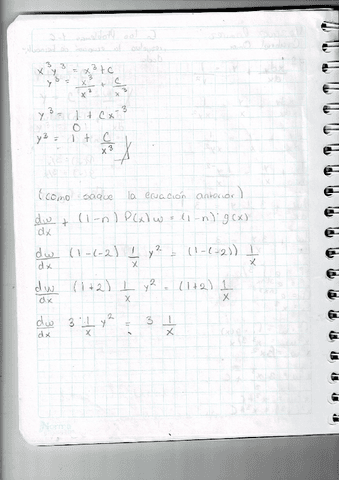 x³y³ = x³ + c
y³ = x³/x³ + c/x³
y³ = 1 + cx⁻³
o
y³ = 1 + c/x³
(como saque la ecuación anterior)
dw/dx + (1-n) P(x) w = (1-n) g(x)
dw/dx (1-(-2) 1/x y² = (1-(-2)) 1/x
dw/dx (1+2) 1/x y² = (1+2) 1/x
dw/dx 3 · 1/x y² = 3 1/x